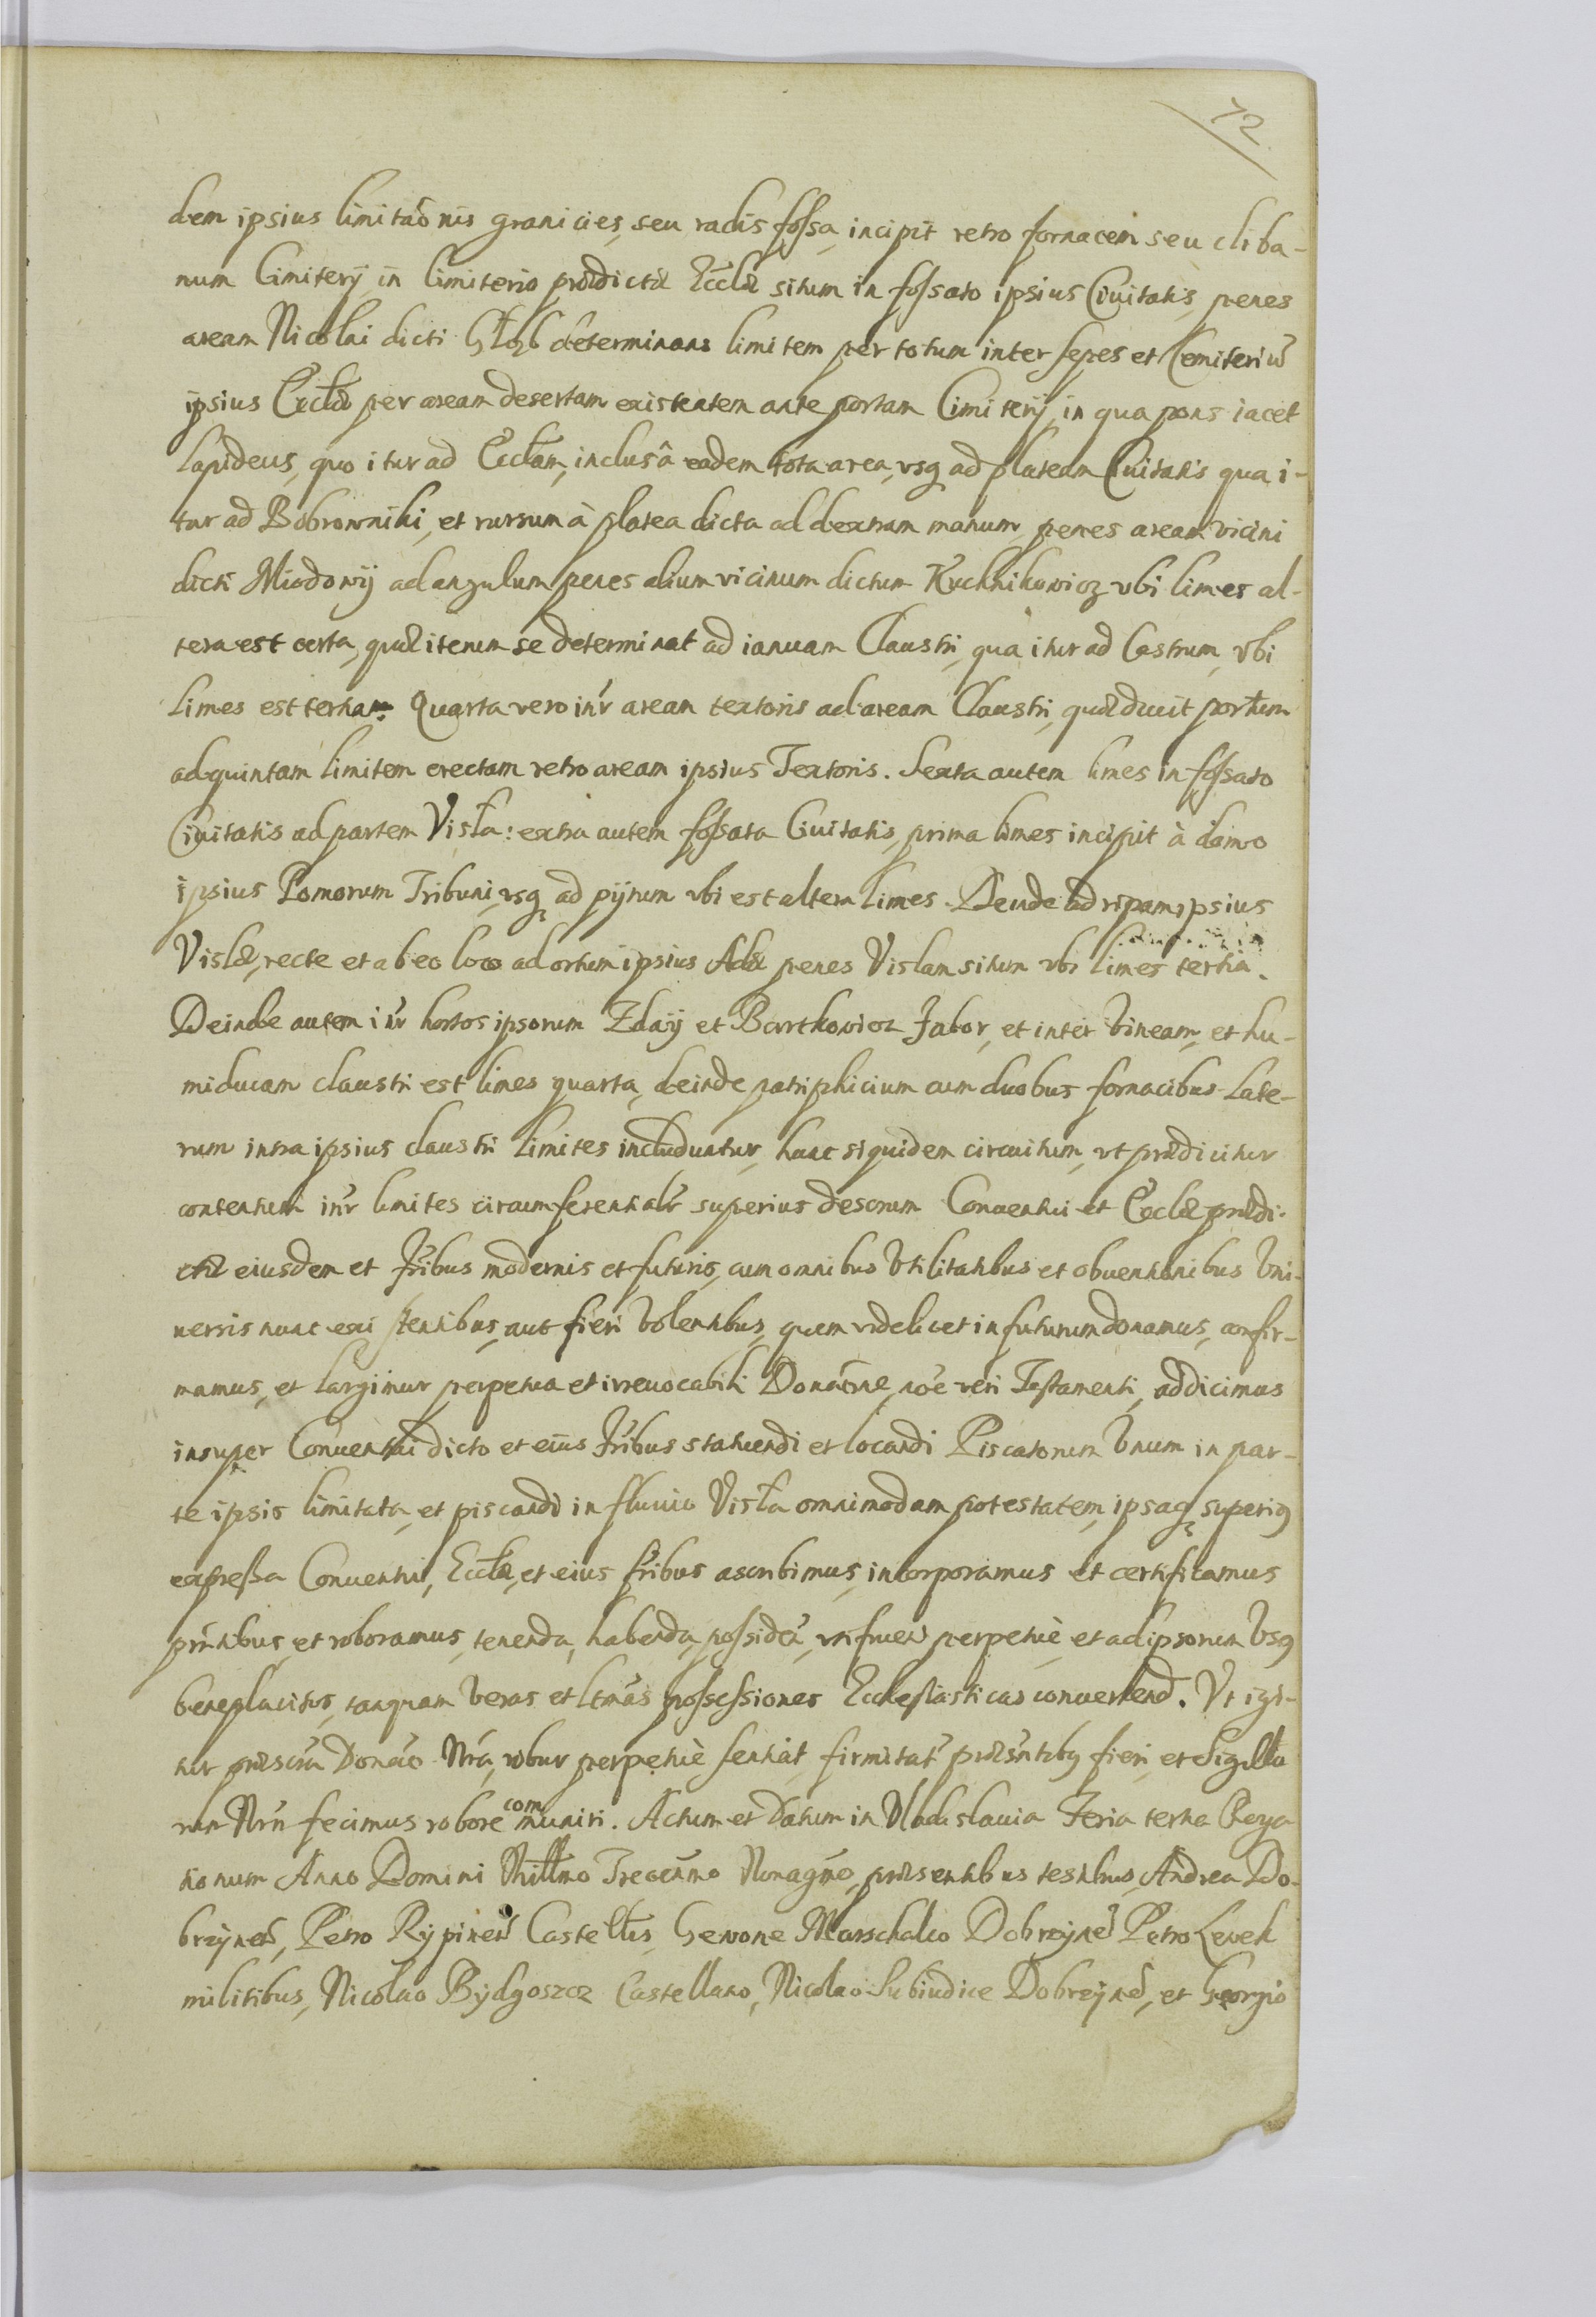 72
dem ipsius limitaõnis granicies, seu radis fossa, incipit retro fornacem seu cliba-
num Cimiterij in Cimiterio prædictæ Ecclæ situm in fossato ipsius Ciuitatis, penes
aream Nicolai dicti determinans limitem per totum inter sepes et Cemiteriũ
ipsius Ecclæ per aream desertam existentem ante portam Cimiterij, in qua pons iacet
lapideus, quo itur ad Ecclam, inclusâ eadem tota area, vsq ad plateam Ciuitatis qua i-
tur ad Bobrowniki, et rursum à platea dicta ad dextram manum penes aream vicini
dicti Miodowij ad angulum penes alium vicinum dictum Kuchnikowicz vbi limes al-
tera est certa, quæ iterum se determinat ad ianuam Claustri, qua itur ad Castrum, vbi
limes est tertia. Quarta vero int̃r aream textoris ad aream Claustri, quæ ducit portum
ad quintam limitem erectam retro aream ipsius Textoris. Sexta autem limes in fossato
Ciuitatis ad partem Visła: extra autem fossata Ciuitatis, prima limes incipit à domo
ipsius Pomorum Tribuni, vsq ad pijrum vbi est altera limes. Deinde ad ripam ipsius
Vislæ, recte et ab eo loco ad ortum ipsius Adæ penes Vislam situm vbi limes tertia.
Deinde autem int̃r hortos ipsorum Zdaij et Bartkowicz Jabor, et inter Vineam, et hu-
miducam claustri est limes quarta, deinde patriphicium cum duobus fornacibus Late-
rum intra ipsius claustri limites includuntur, hanc siquidem circuitum, vt prædicitur
contentum int̃r limites circumferentialr̃ superius descrum Conuentui et Ecclæ prædi-
ctæ eiusdem et fr̃ibus modernis et futuris, cum omnibus Vtilitatibus et obuentionibus Vni-
uersis nunc existentibus, aut fieri Volentibus, quem videlicet in futurum donamus, confir-
mamus, et largimur perpetua et irreuocabili Donatõne, nõe veri Testamenti, addicimus
insuper Conuentui dicto et eius fr̃ibus statuendi et locandi Piscatorem Vnum in par-
te ipsis limitata, et piscandi in fluuio Visła omnimodam potestatem, ipsaq superiq
expressa Conuentui, Ecclæ, et eius fr̃ibus ascribimus, incorporamus et certificamus
pr̃ntibus, et roboramus, tenenda, habenda, possidẽ, vtifruen perpetuè et ad ipsorum Vsq
beneplacitos, tanquam Veras et ltm̃as possessiones Ecclesiasticas conuertend. Vt igi-
tur præscr̃a Donaõ Nr̃a, robur perpetuè sentiat firmitat̃ præsñtibq fieri, et Sigillo
rum Nr̃m fecimus robore communiri. Actum et Datum in Vladislauia Feria tertia Roga
tionum Anno Domini Millmo Trecenmo Nonagmo, præsentibus testibus, Andrea Do-
brzynen, Petro Rypinen Castellis, Geuone Marschalco Dobrzynen Petro Leuek
militibus, Nicolao Bydgoszcz Castellano, Nicolao Subiudice Dobrzynen, et Georgio